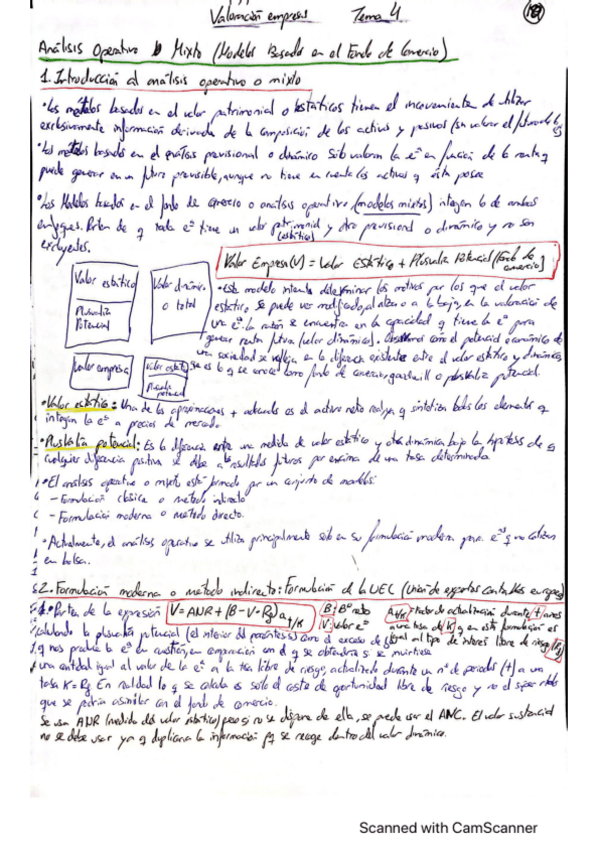 Valoración empresas Tema 4
Análisis Operativo o Mixto (Modelos Basados en el Fondo de Comercio)
1. Introducción al análisis operativo o mixto
• Los métodos basados en el valor patrimonial o estáticos tienen el inconveniente de utilizar
exclusivamente información derivada de la composición de los activos y pasivos (sin valorar el futuro de la eª)
• Los métodos basados en el análisis previsional o dinámico sólo valoran la eª en función de la renta q
puede generar en un futuro previsible, aunque no tiene en cuenta los activos q ésta posee
• Los Modelos basados en el fondo de comercio o análisis operativo (modelos mixtos) integran lo de ambos
enfoques. Parten de q toda eª tiene un valor patrimonial y otro previsional o dinámico y no son
(estático)
excluyentes.
Valor Empresa (V) = Valor Estático + Plusvalía Potencial (fondo de comercio)
Valor estático
Plusvalía Potencial
Valor dinámico o total
Valor empresa
Valor estático
Plusvalía potencial
• Este modelo intenta determinar los motivos por los que el valor
estático se puede ver modificado, al alza o a la baja, en la valoración de
una eª. La razón se encuentra en la capacidad q tiene la eª para
generar renta futura (valor dinámico). como el potencial económico de
una sociedad se refleja en la diferencia existente entre el valor estático y dinámico,
que es lo q se conoce como fondo de comercio, goodwill o plusvalía potencial.
• Valor estático: Una de las aproximaciones + adecuadas es el activo neto real, ya q sintetiza todos los elementos q
integran la eª a precios de mercado.
• Plusvalía potencial: Es la diferencia entre una medida de valor estático y otra dinámica bajo la hipótesis de q
cualquier diferencia positiva se debe a resultados futuros por encima de una tasa determinada.
• El análisis operativo o mixto está formado por un conjunto de modelos:
- Formulación clásica o método indirecto
- Formulación moderna o método directo.
• Actualmente, el análisis operativo se utiliza principalmente sólo en su formulación moderna para eªs q no cotizan
en bolsa.
2. Formulación moderna o método indirecto: Formulación de la UEC (Unión de expertos contables europeos)
1. Parten de la expresión V = ANR + (B - V · Rf) a t/K B: Bº neto V: valor eª a t/K = factor de actualización durante t años
a una tasa de K q en esta formulación es
igual al tipo de interés libre de riesgo (Rf)
Calculando la plusvalía potencial (el interior del paréntesis) como el exceso de Bº
q nos produce la eª en cuestión, en comparación con el q se obtendría si se invirtiese
una cantidad igual al valor de la eª a la tasa libre de riesgo, actualizado durante un nº de periodos (t) a una
tasa K = Rf. En realidad lo q se calcula es sólo el coste de oportunidad libre de riesgo y no el
que se podría asimilar con el fondo de comercio.
Se usa ANR (medida del valor estático) pero si no se dispone de ella, se puede usar el ANC. El valor sustancial
no se debe usar ya q duplicaría la información pq se recoge dentro del valor dinámico.
Scanned with CamScanner